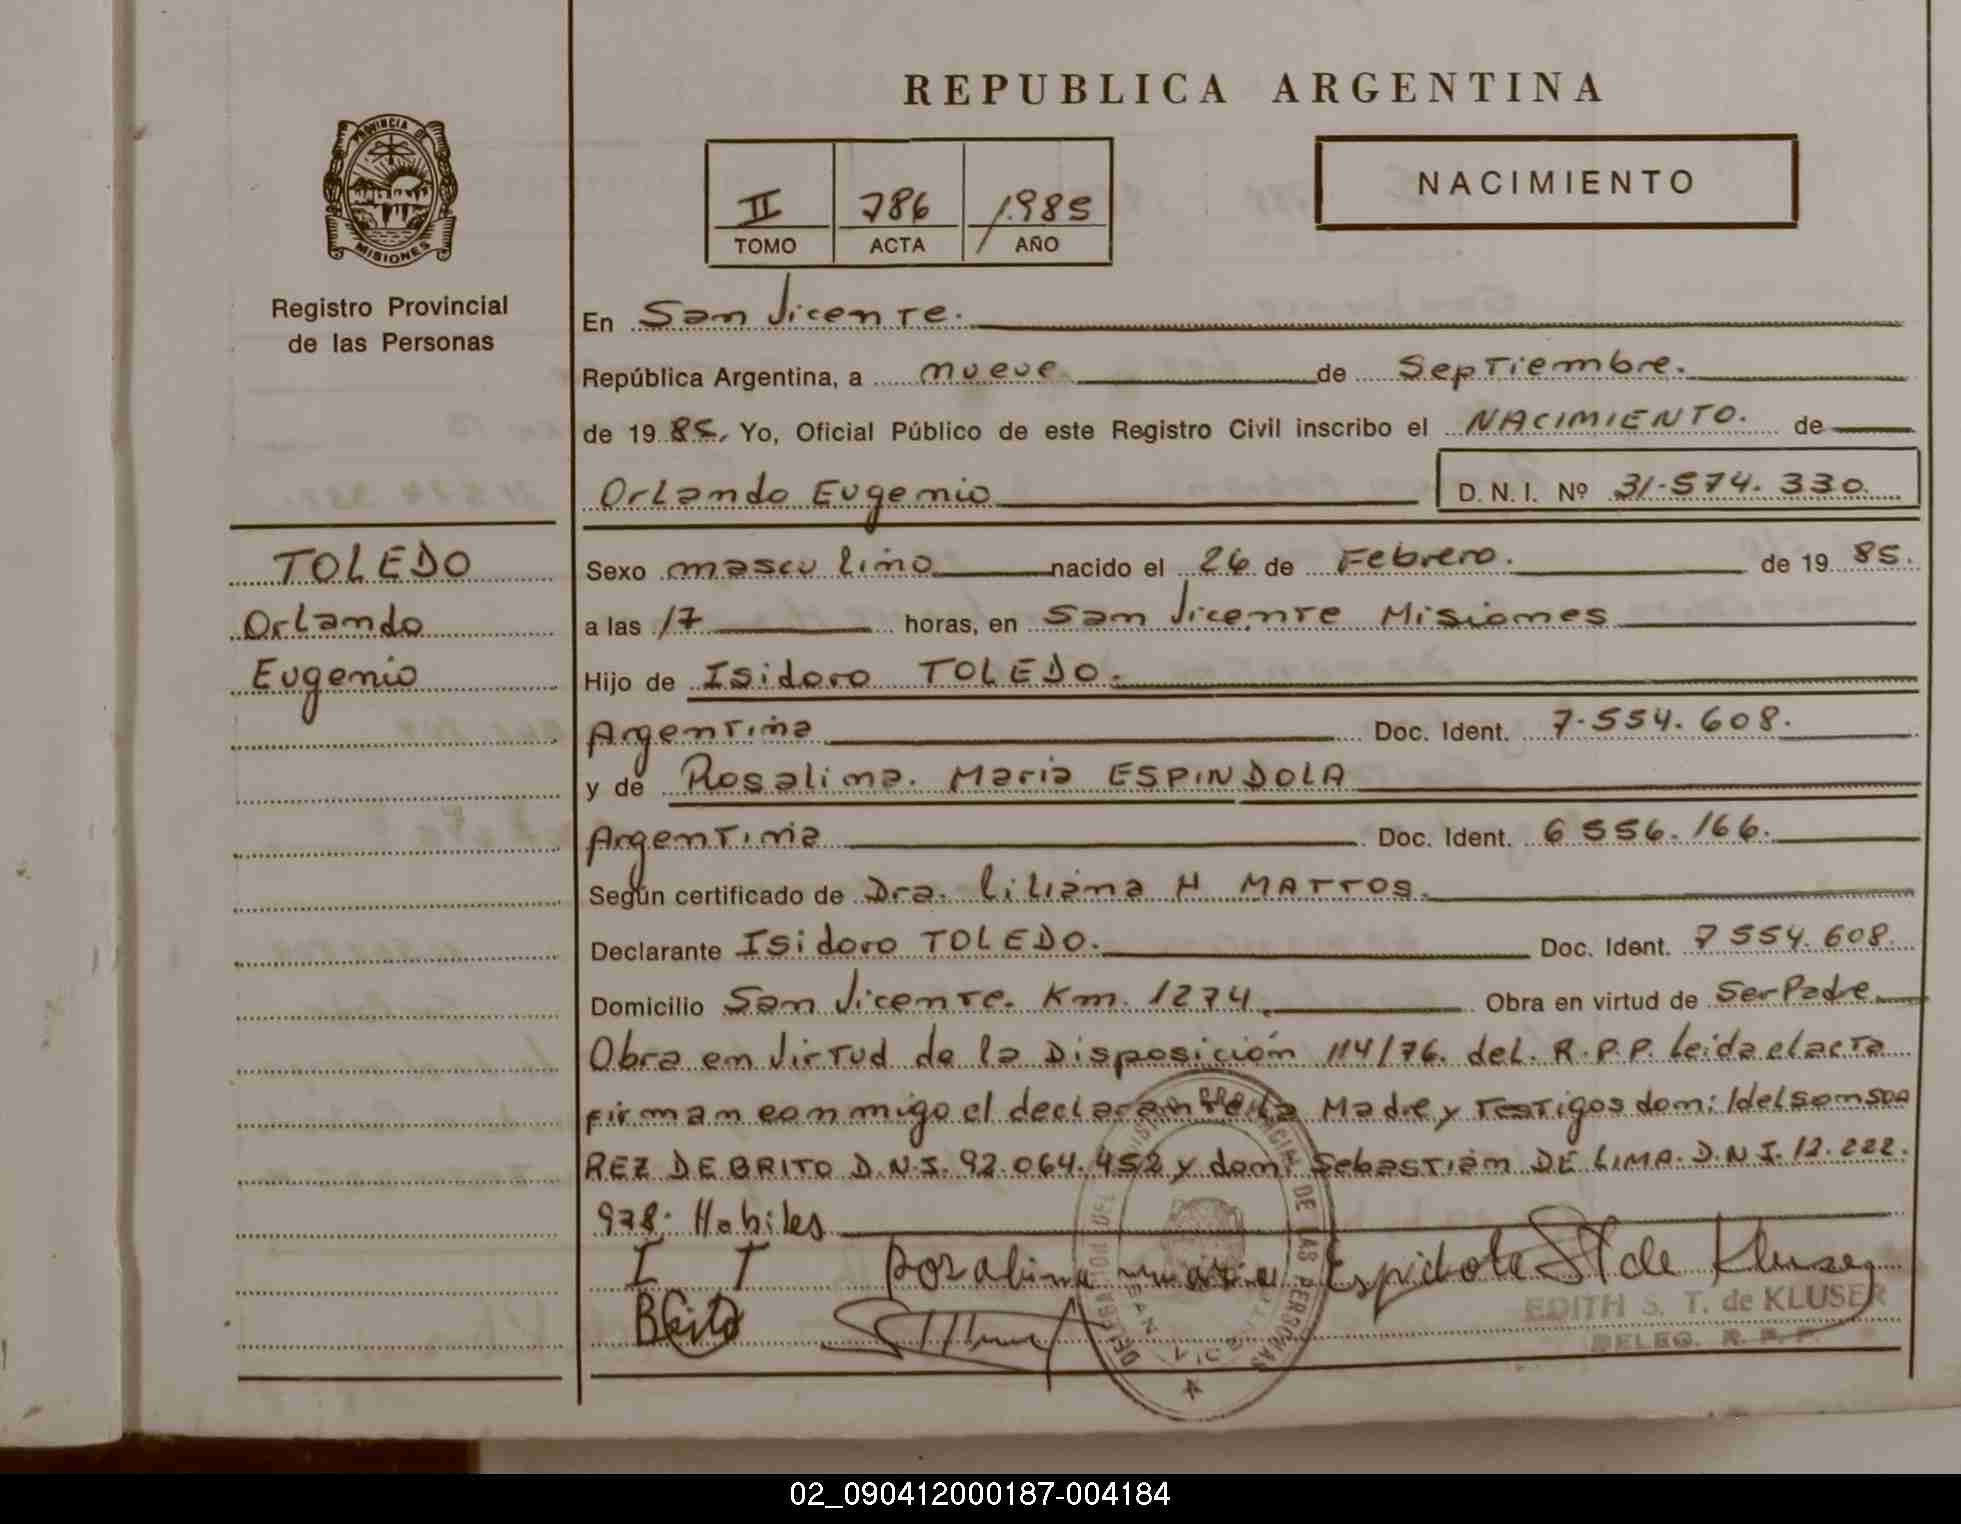 REPUBLICA ARGENTINA
PROVINCIA DE MISIONES
II 786 1985
TOMO ACTA AÑO
NACIMIENTO
Registro Provincial
de las Personas
En San Vicente.
República Argentina, a nueve de Septiembre.
de 1985. Yo, Oficial Público de este Registro Civil inscribo el NACIMIENTO. de
Orlando Eugenio D. N. I. Nº 31-574.330.
TOLEDO
Orlando
Eugenio
Sexo masculino nacido el 26 de Febrero. de 1985.
a las 17 horas, en San Vicente Misiones
Hijo de Isidoro TOLEDO.
Argentina Doc. Ident. 7.554.608.
y de Rosalina. Maria ESPINDOLA
Argentina Doc. Ident. 6556.166.
Según certificado de Dra. Liliana H MATTOS.
Declarante Isidoro TOLEDO. Doc. Ident. 7554.608.
Domicilio San Vicente. Km. 1274. Obra en virtud de Ser Padre
Obra en virtud de la Disposición 114/76. del. R.P.P. Leida el acta
firman conmigo el declarante la Madre y Testigos don: Idelson SOA
REZ DE BRITO D.N.I. 92.064.452 y don: Sebastián DE LIMA. D.N.I. 12.222.
978. Habiles
I T Rozalina maria Espidola ST de Kluser
Brito
EDITH S. T. de KLUSER
DELEG. R. P. P.
DELEGACION DEL REGISTRO PROVINCIAL DE LAS PERSONAS
SAN VICENTE
02_090412000187-004184